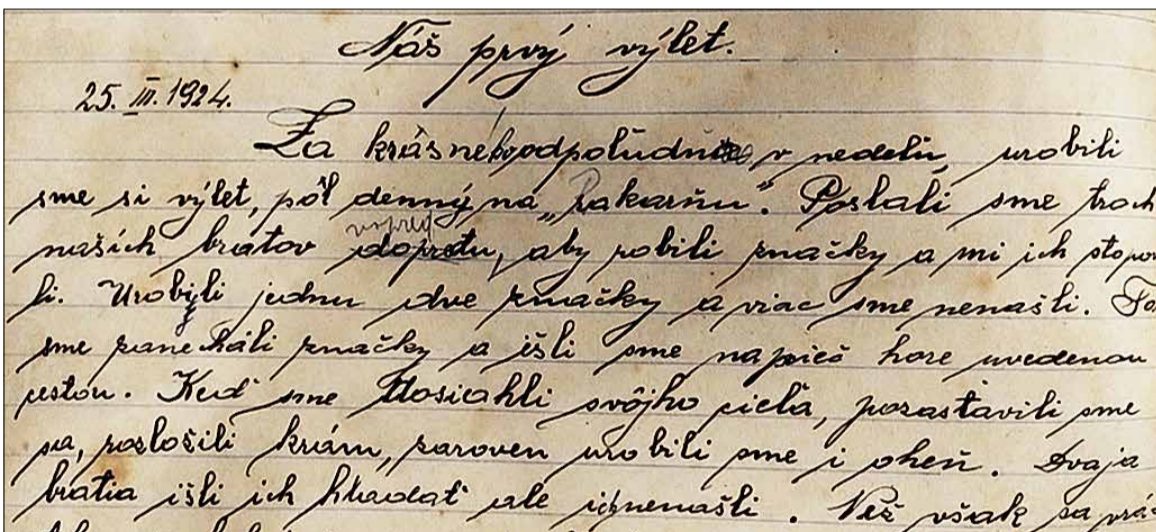 Náš prvý výlet.
25. III. 1924.
Za krásného odpoludnia v nedeľu, urobili
sme si výlet, pól denný na „Rakarňu". Poslali sme troch
vopred
našich bratov doprdu, aby robili značky a mi ich stopova
li. Urobyli jednu dve značky a viac sme nenašli.
sme zanechali značky a išli sme napieč hore uvedenou
cestou. Keď sme dosiahli svôjho cieľa, pozastavili sme
sa, rozložili krám, zároven urobili sme i oheň. Dvaja
bratia išli ich hľadať ale ich nenašli. Než však sa